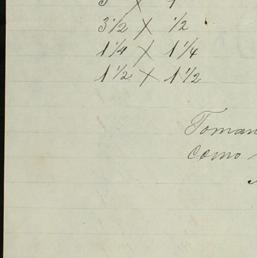 3 1/2 X 1/2
1 1/4 X 1 1/4
1 1/2 X 1 1/2
Toman
como